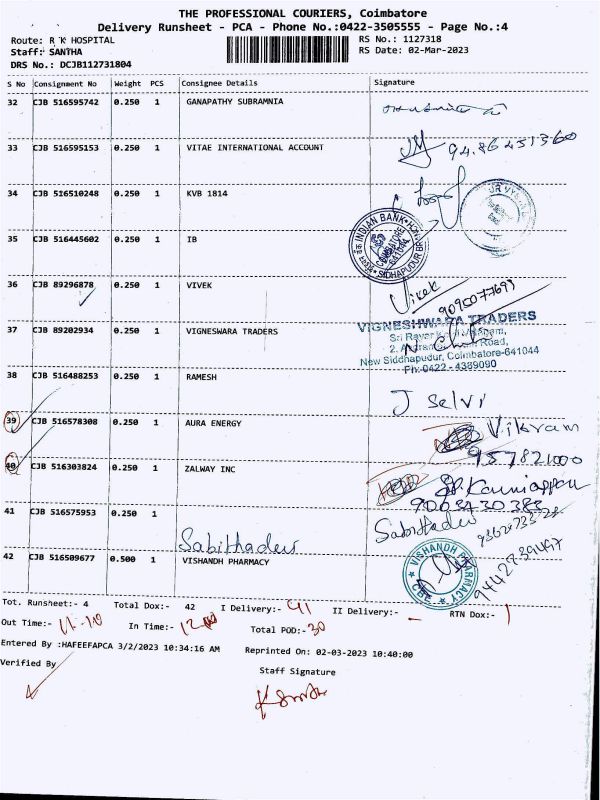 THE PROFESSIONAL COURIERS, Coimbatore
Delivery Runsheet - PCA - Phone No.:0422-3505555 - Page No.:4
Route: R K HOSPITAL RS No.: 1127318
Staff: SANTHA RS Date: 02-Mar-2023
DRS No.: DCJB112731804
S No Consignment No Weight PCS Consignee Details Signature
32 CJB 516595742 0.250 1 GANAPATHY SUBRAMNIA
33 CJB 516595153 0.250 1 VITAE INTERNATIONAL ACCOUNT 9486451360
34 CJB 516510248 0.250 1 KVB 1814
35 CJB 516445602 0.250 1 IB
INDIAN BANK
COIMBATORE
641044
SIDHAPUDUR BR
36 CJB 89296878 0.250 1 VIVEK Vivek
9095077699
37 CJB 89202934 0.250 1 VIGNESWARA TRADERS
VIGNESHWARA TRADERS
Road,
New Siddhapudur, Coimbatore-641044
Ph:0422 - 4389090
38 CJB 516488253 0.250 1 RAMESH J Selvi
39 CJB 516578308 0.250 1 AURA ENERGY Vikram
957821000
40 CJB 516303824 0.250 1 ZALWAY INC
9003430388
41 CJB 516575953 0.250 1 Sabithadevi Sabithadevi
42 CJB 516509677 0.500 1 VISHANDH PHARMACY
VISHANDH PHARMACY
Tot. Runsheet:- 4 Total Dox:- 42 I Delivery:- 41 II Delivery:- - RTN Dox:- 1
Out Time:- 11-10 In Time:- 12.00 Total POD:- 30
Entered By :HAFEEFAPCA 3/2/2023 10:34:16 AM Reprinted On: 02-03-2023 10:40:00
Verified By Staff Signature